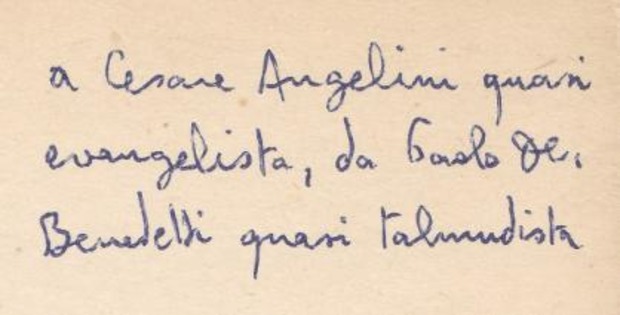 a Cesare Angelini quasi
evangelista, da Paolo De
Benedetti quasi talmudista